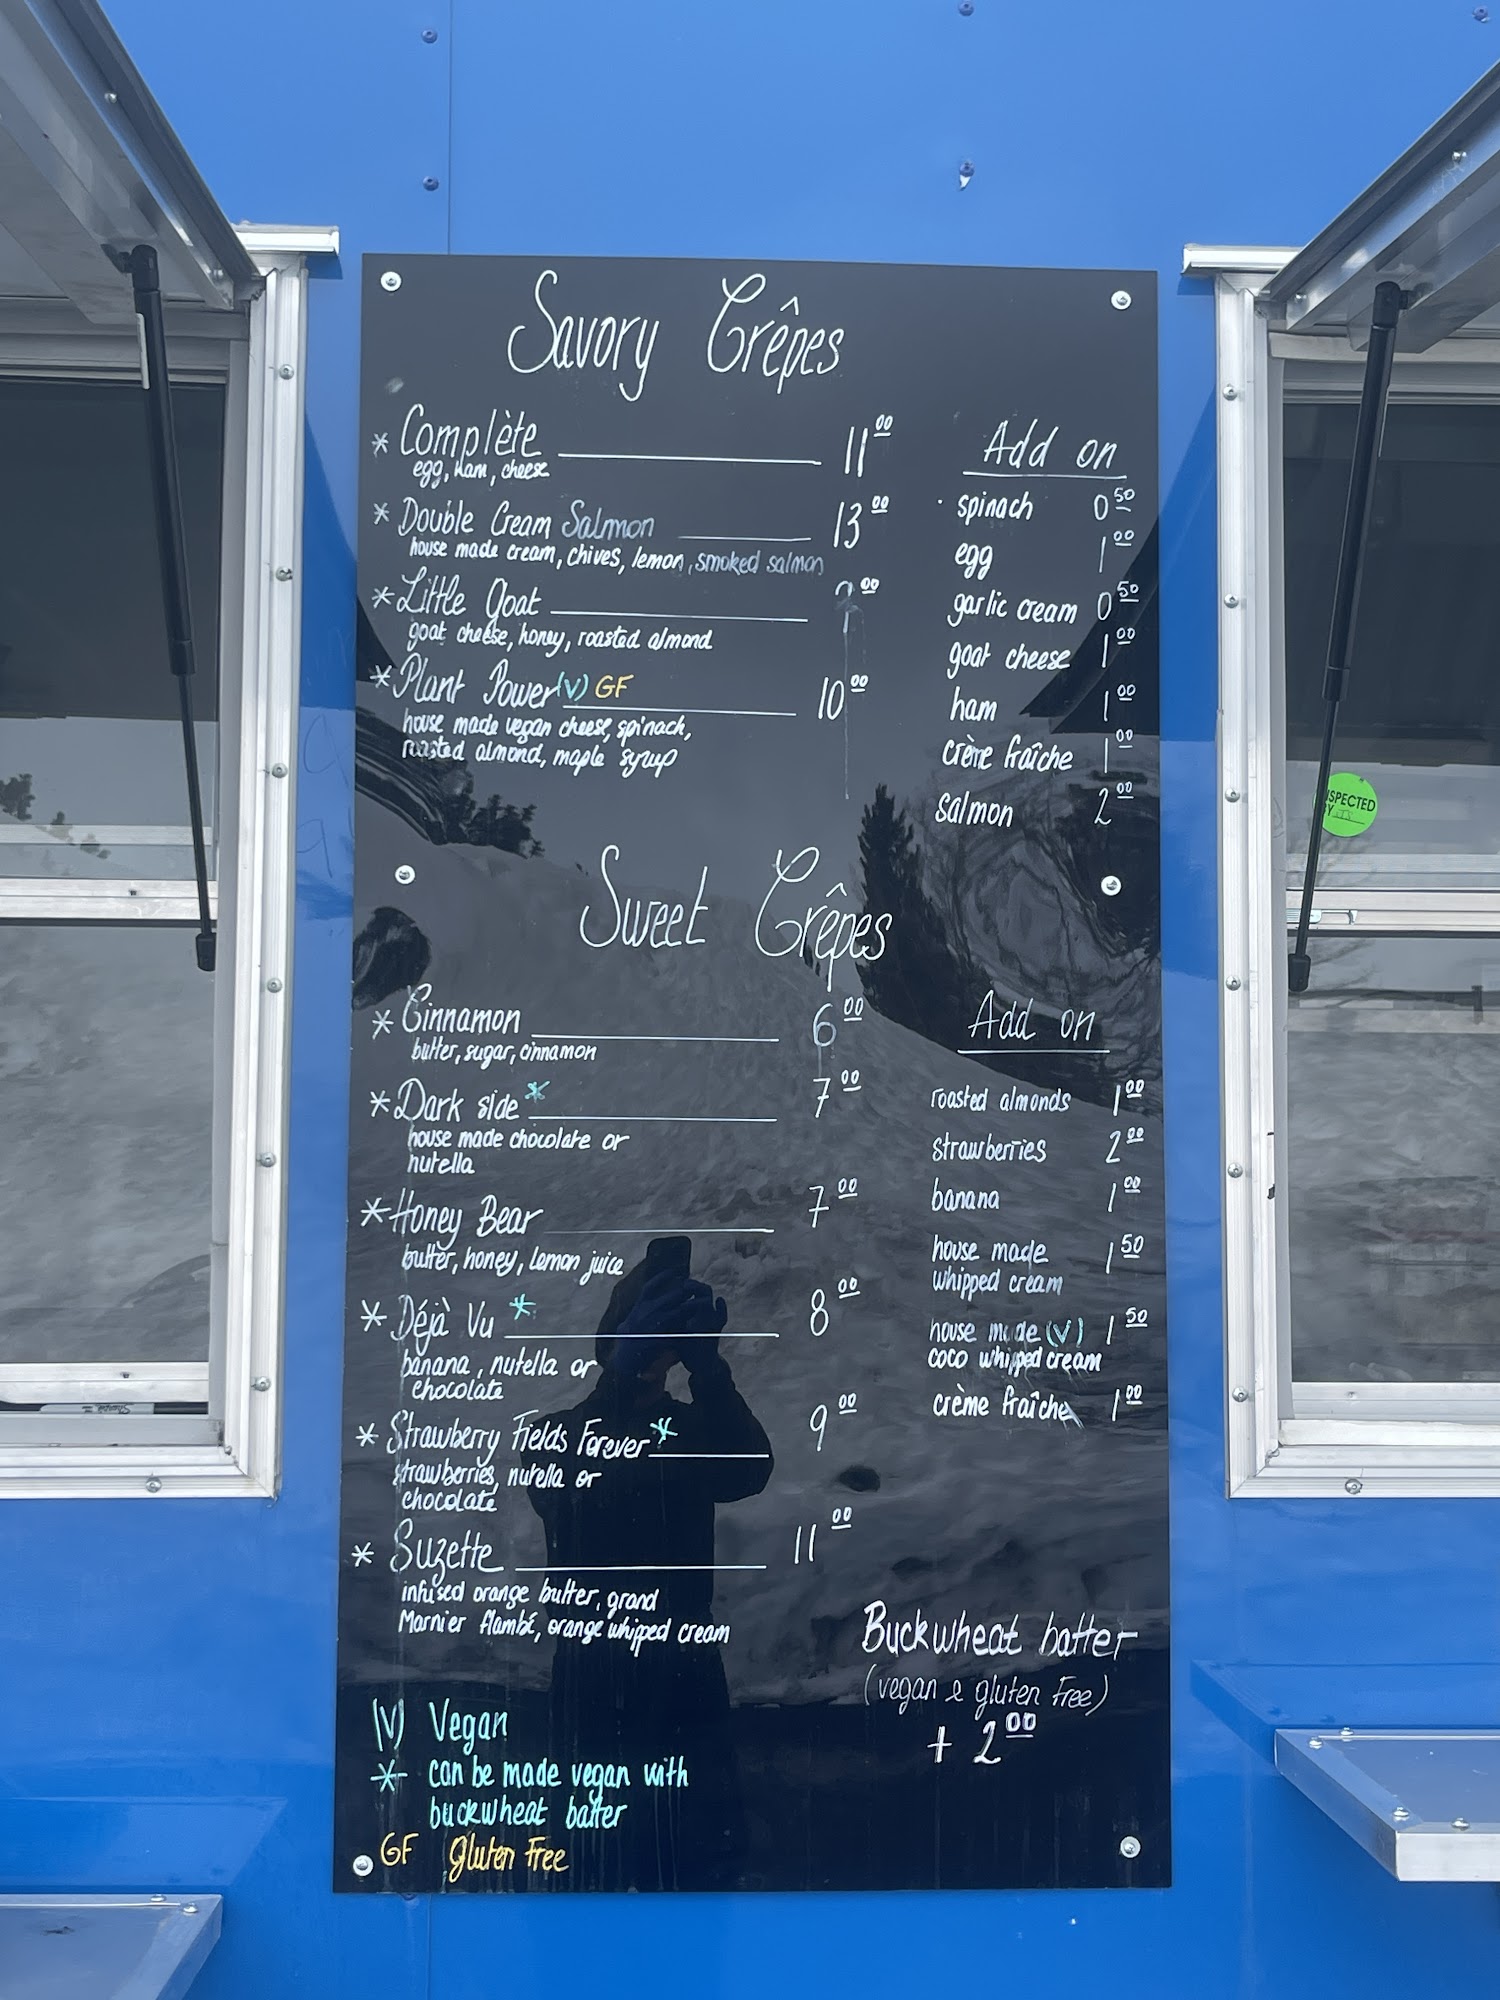 Savory Crêpes
* Complète 11.00
egg, ham, cheese
* Double Cream Salmon 13.00
house made cream, chives, lemon, smoked salmon
* Little Goat .00
goat cheese, honey, roasted almond
* Plant Power (V) GF 10.00
house made vegan cheese, spinach,
roasted almond, maple syrup
Add on
spinach 0.50
egg 1.00
garlic cream 0.50
goat cheese 1.00
ham 1.00
crème fraîche 1.00
salmon 2.00
Sweet Crêpes
* Cinnamon 6.00
butter, sugar, cinnamon
* Dark side * 7.00
house made chocolate or
nutella
* Honey Bear 7.00
butter, honey, lemon juice
* Déjà Vu * 8.00
banana, nutella or
chocolate
* Strawberry Fields Forever * 9.00
strawberries, nutella or
chocolate
* Suzette 11.00
infused orange butter, grand
Marnier flambé, orange whipped cream
Add on
roasted almonds 1.00
strawberries 2.00
banana 1.00
house made 1.50
whipped cream
house made (V) 1.50
coco whipped cream
crème fraîche 1.00
Buckwheat batter
(vegan & gluten free)
+ 2.00
(V) Vegan
* can be made vegan with
buckwheat batter
GF Gluten Free